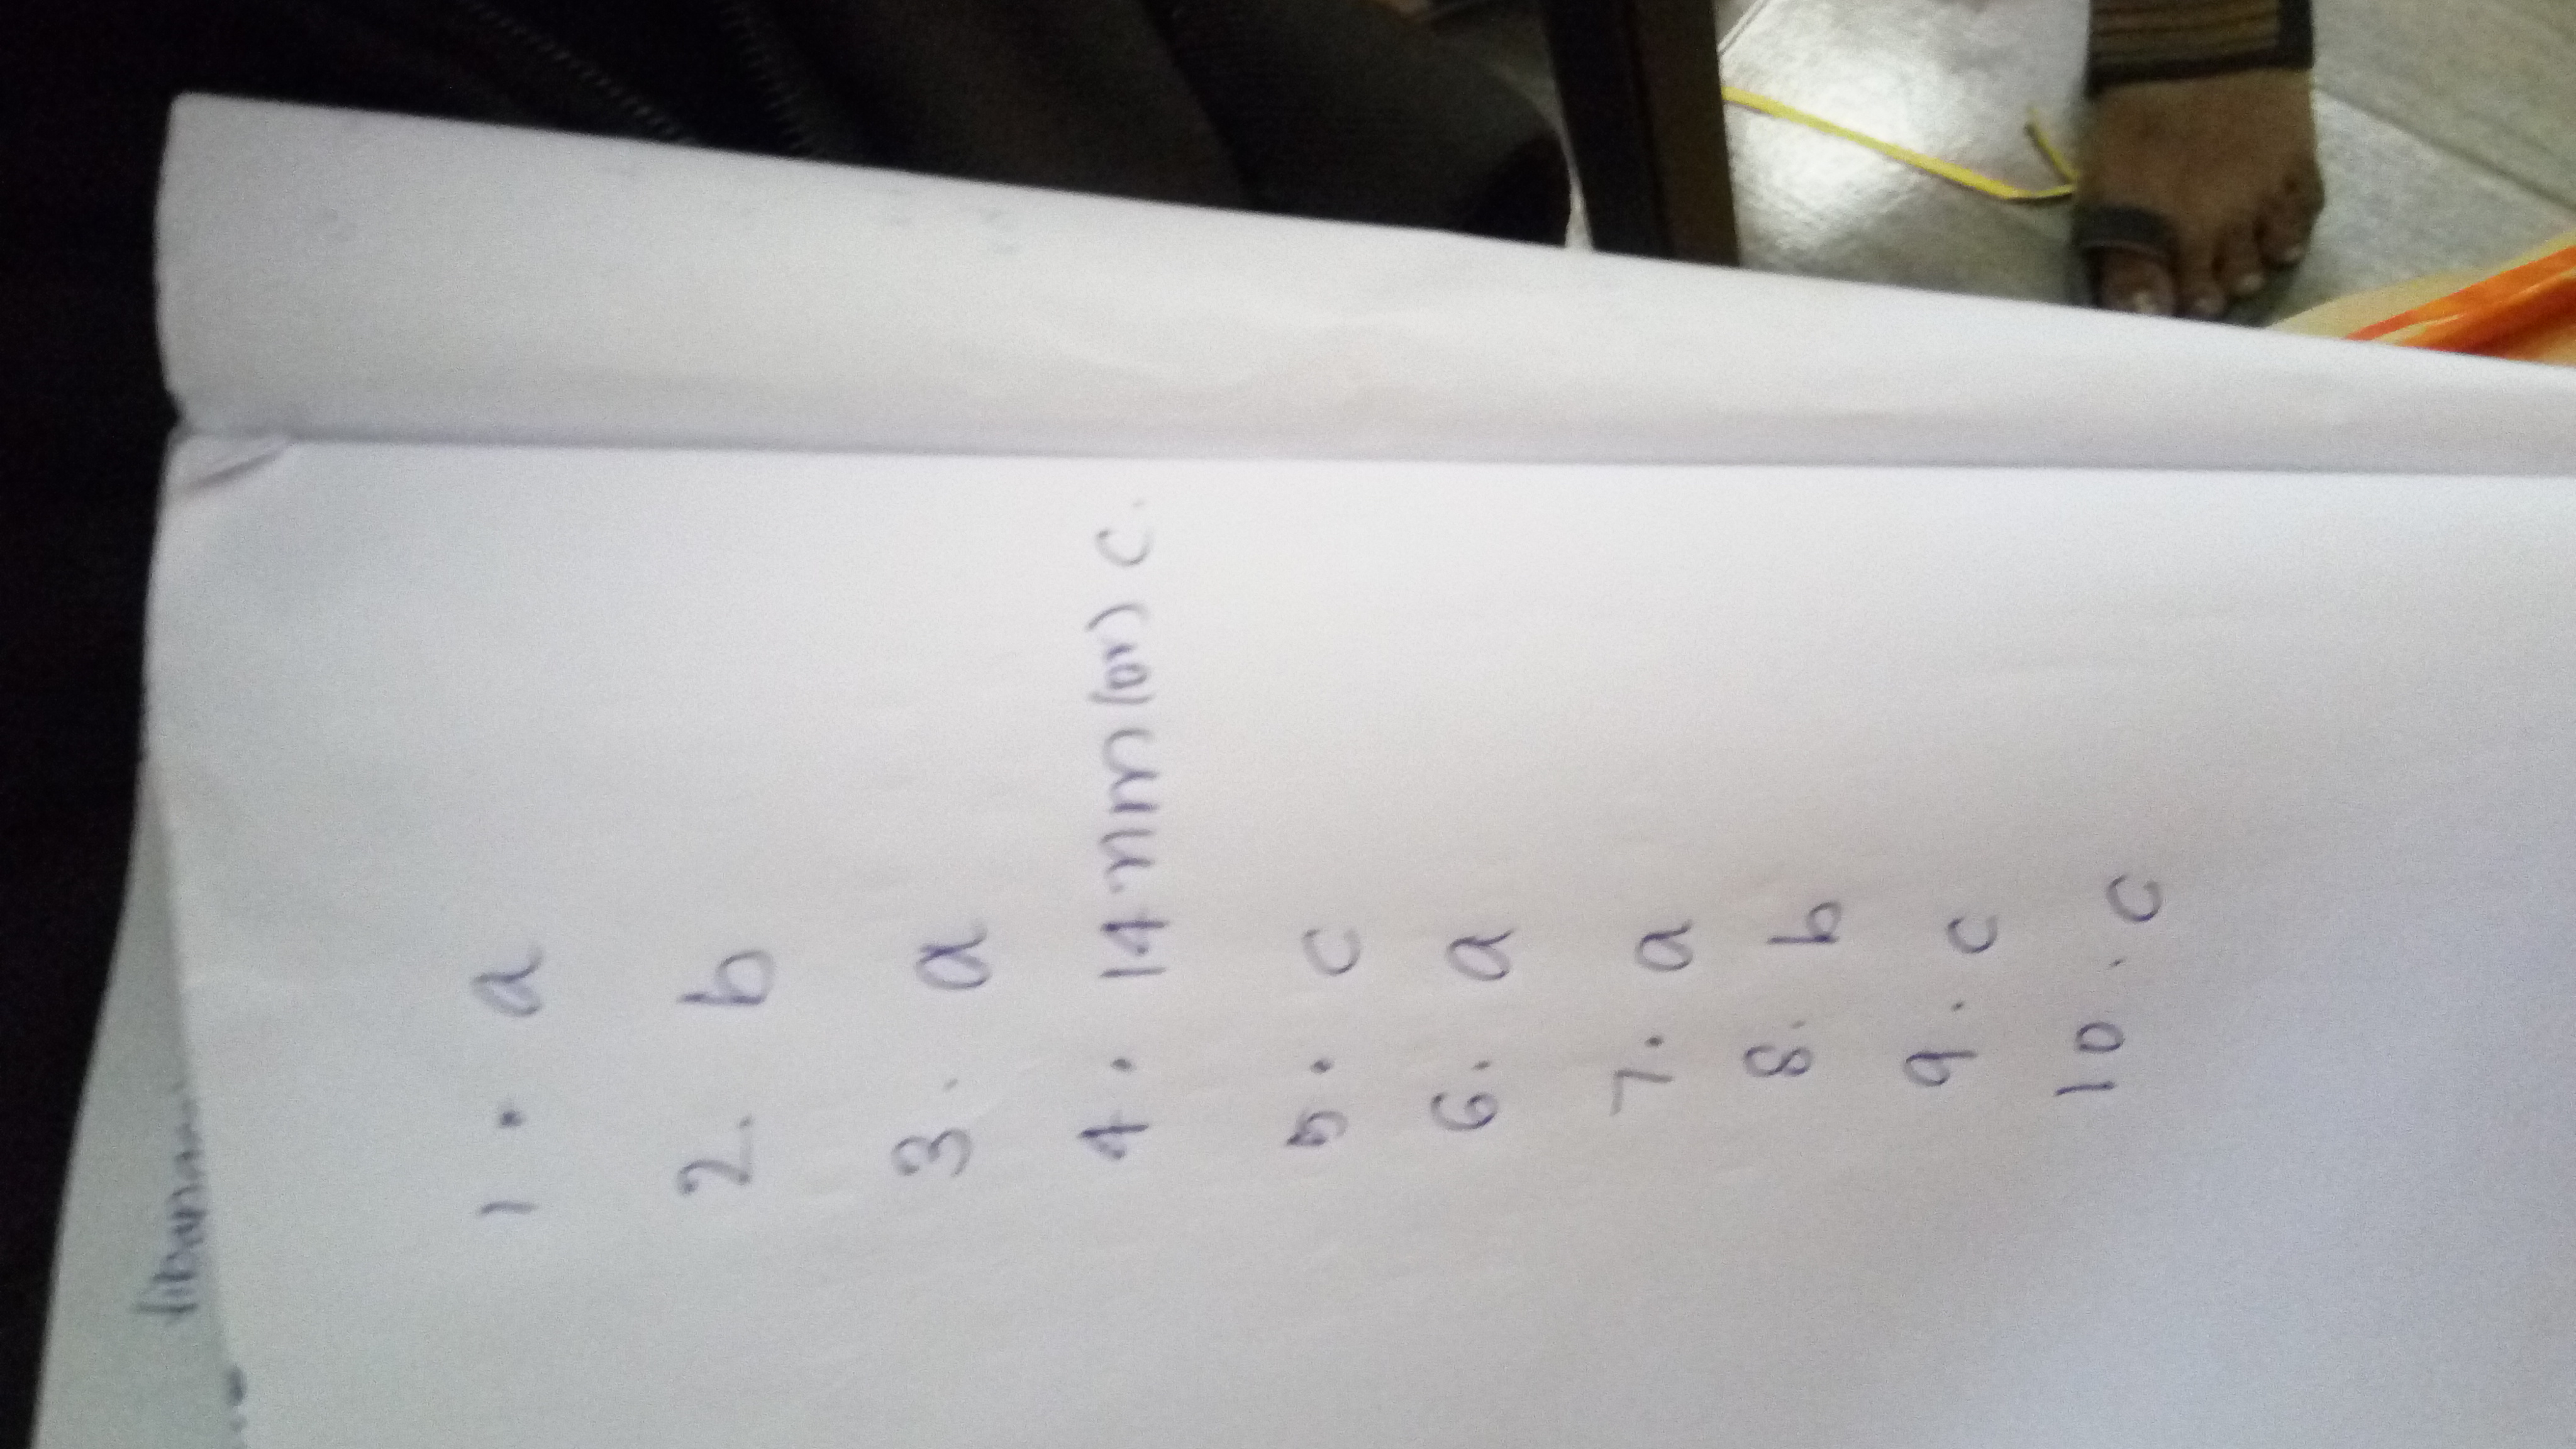 1. a
2. b
3. a
4. 14 nm (or) c.
5. c
6. a
7. a
8. b
9. c
10. c